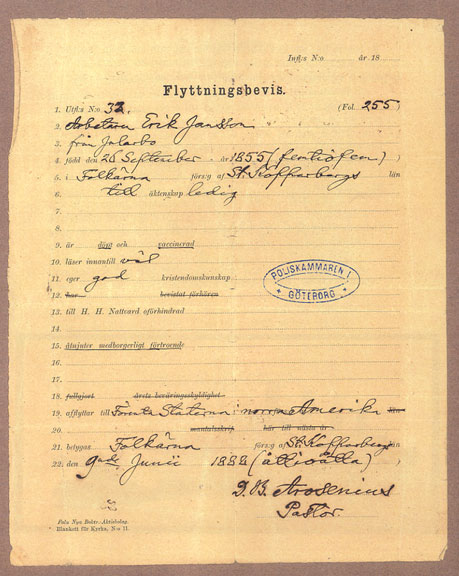 Infl:s N:o år 18
Flyttningsbevis.
1. Utfl:s N:o 32. (Fol. 255)
2. Arbetaren Erik Jansson
3. från Jularbo
4. född den 26 September år 1855 (femtiofem)
5. i Folkärna förs:g af St. Kopparbergs län
6. till äktenskap ledig
7.
8.
9. är döpt och vaccinerad
10. läser innantill väl
11. eger god kristendomskunskap
12. har bevistat förhören
13. till H. H. Nattvard oförhindrad
14.
15. åtnjuter medborgerligt förtroende
16.
17.
18. fullgjort årets beväringsskyldighet
19. afflyttar till Förenta Staterna i norra Amerika
20. mantalsskrif här till nästa år
21. betygas Folkärna förs:g af St. Kopparbergs län
22. den 9de Junii 1888 (åttioåtta)
D. B. Arosenius
Pastor.
POLISKAMMAREN I
GÖTEBORG
Falu Nya Boktr.-Aktiebolag.
Blankett för Kyrka, N:o 11.